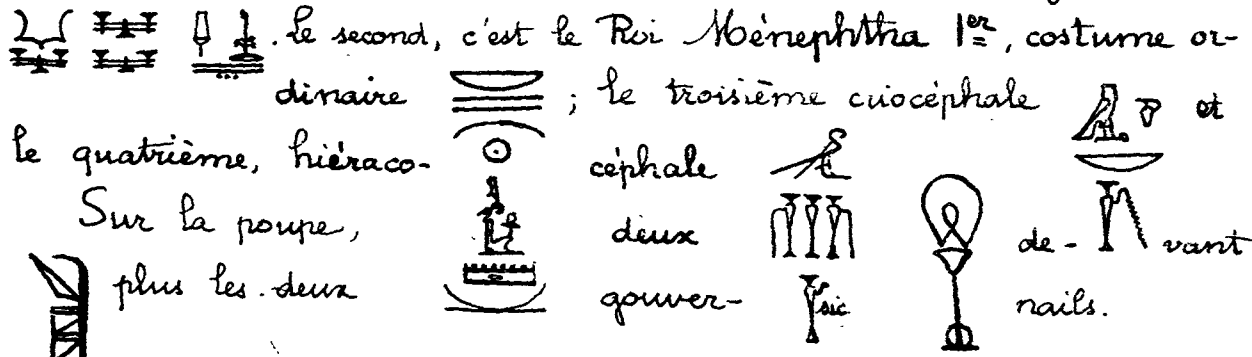 . Le second, c'est le Roi Ménephtha 1er, costume or-
dinaire ; le troisième criocéphale et
le quatrième, hiéraco- céphale
Sur la poupe, deux de- vant
plus les deux gouver- sic nails.